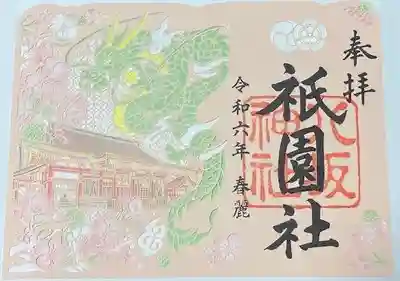 奉拝
祇園社
八坂神社
令和六年 春麗